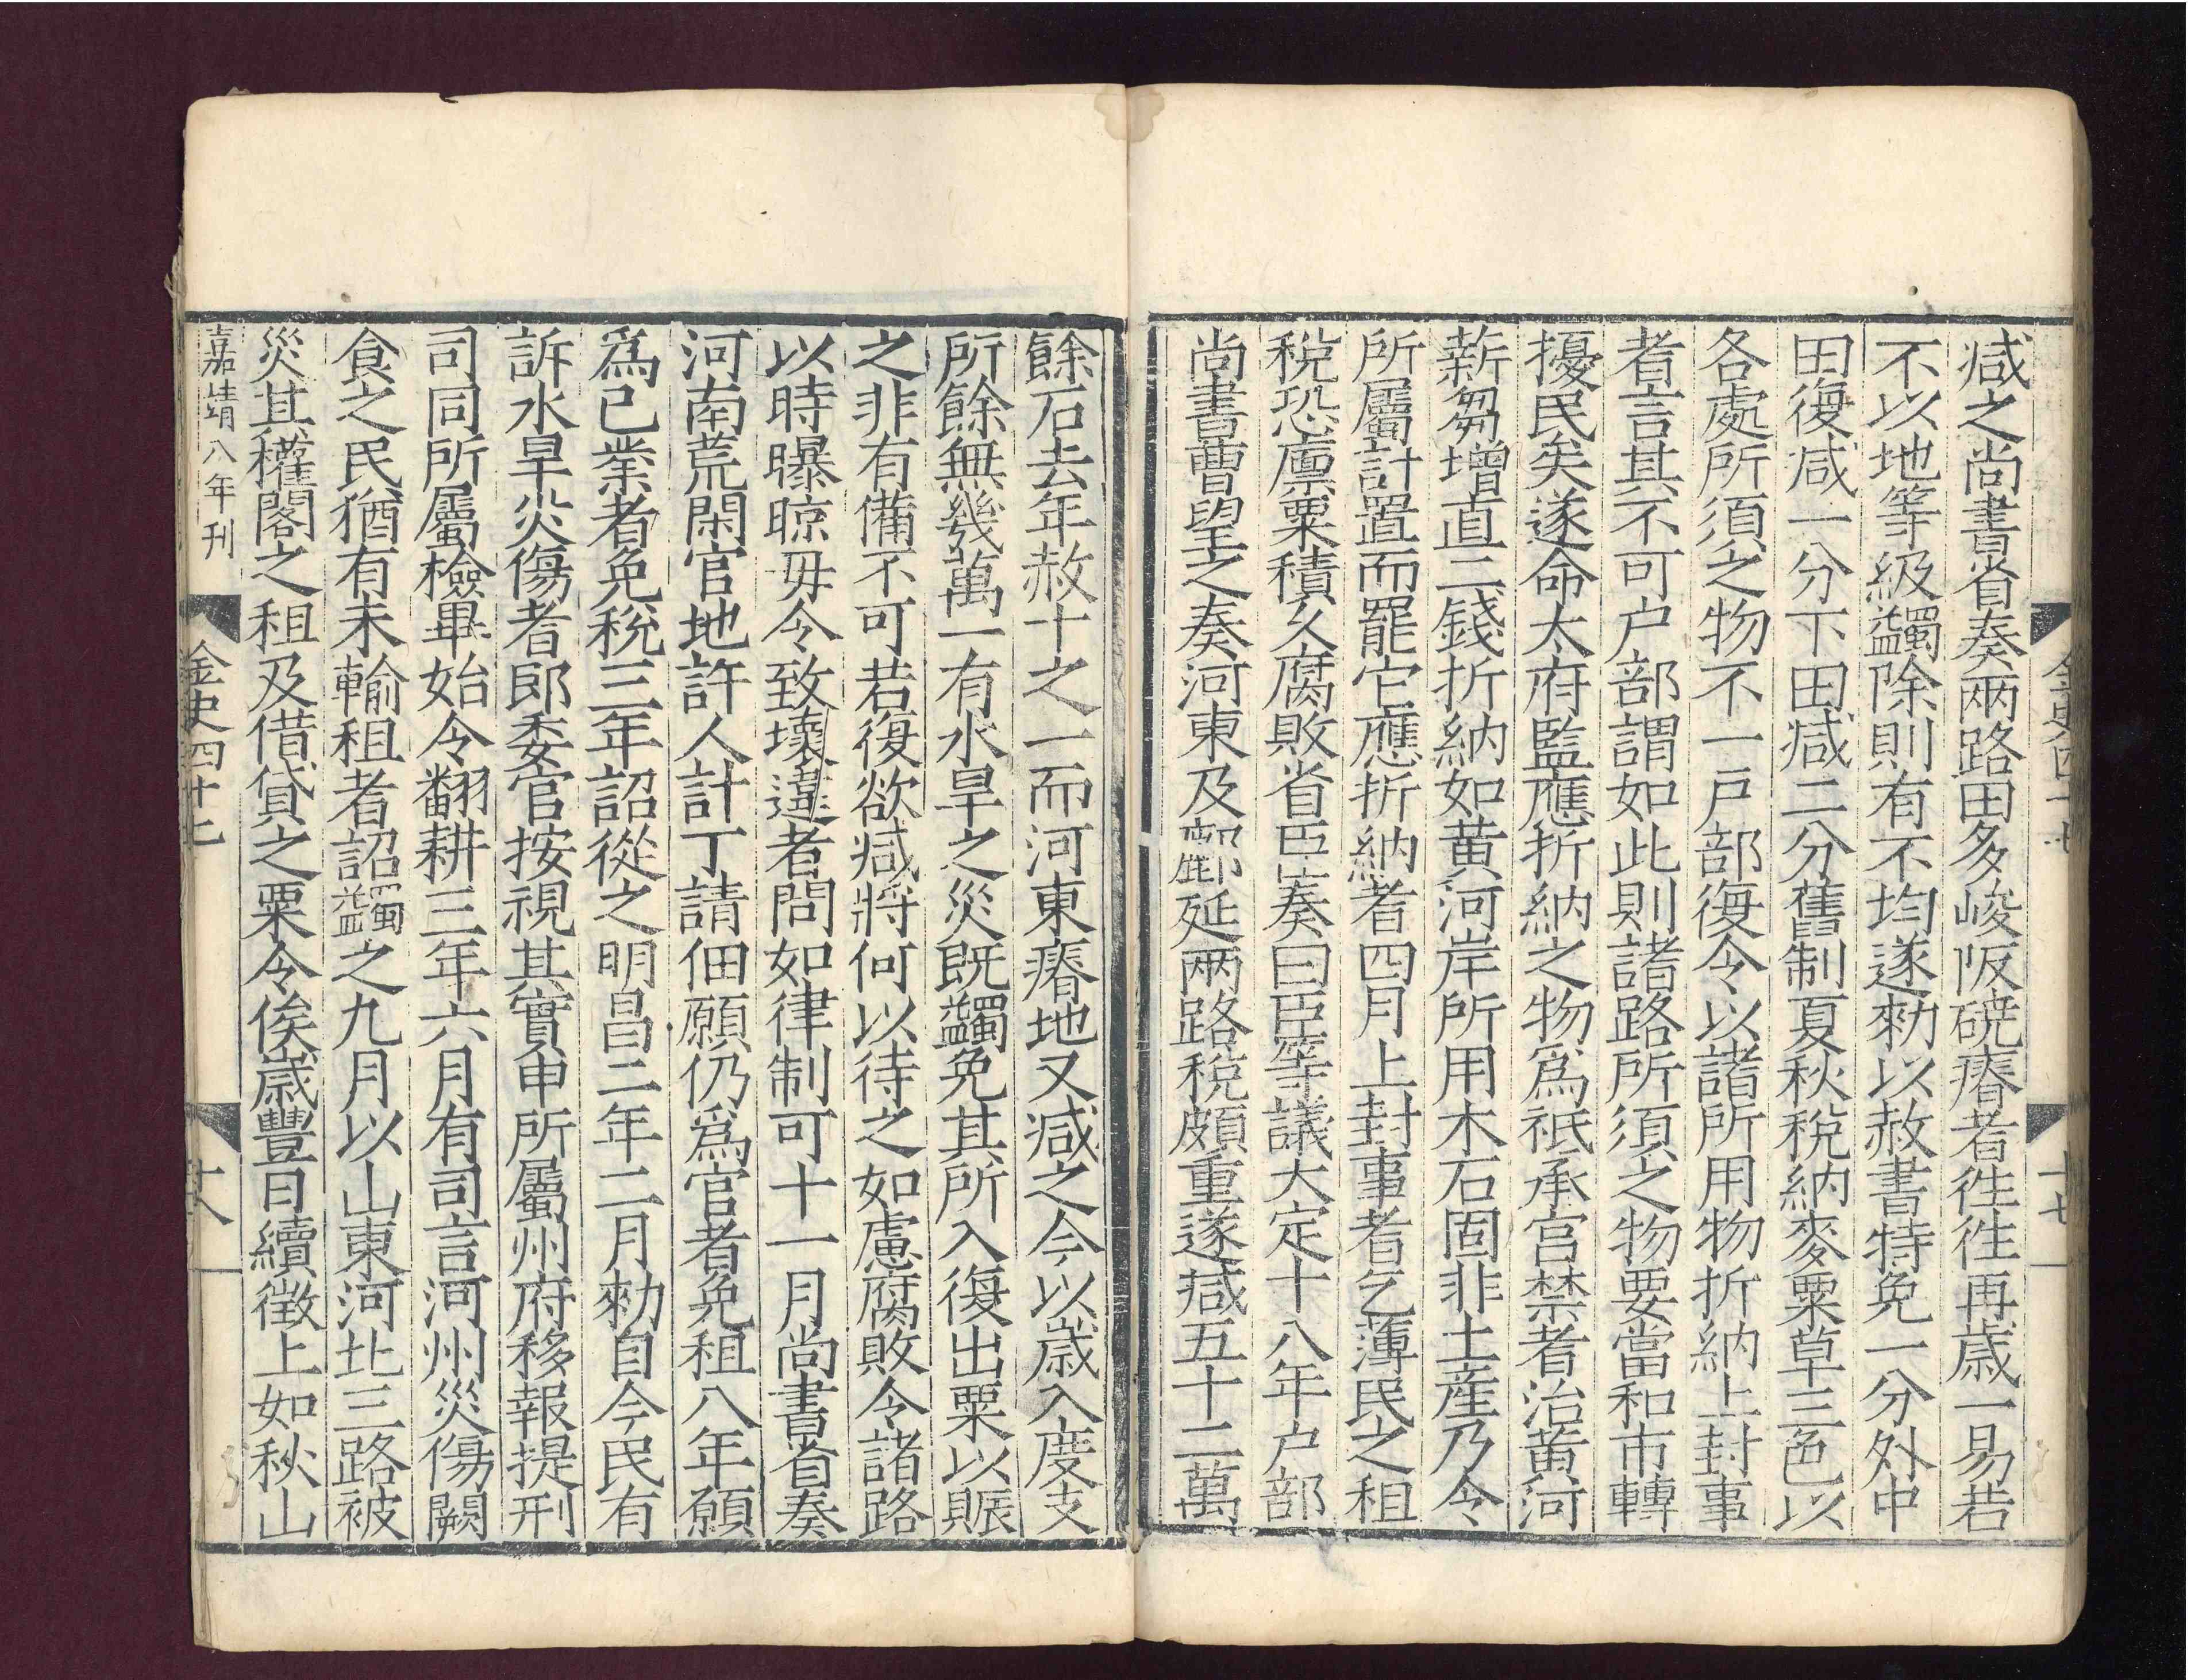 金史四十七
十七
减之尚書省奏兩路田多峻阪磽瘠者徃徃再歲一易若
不以地等級蠲除則有不均遂勑以赦書特免一分外中
田復减一分下田减二分舊制夏秋稅納麥粟草三色以
各處所須之物不一戶部復令以諸所用物折納上封事
者言其不可户部謂如此則諸路所須之物要當和市轉
擾民矣遂命太府監應折納之物爲祗承宫禁者治黄河
薪芻增直二錢折納如黄河岸所用木石固非土産乃令
所屬計置而罷它應折納者四月上封事者乞薄民之租
稅恐廪粟積久腐敗省臣奏曰臣等議大定十八年户部
尚書曹望之奏河東及鄜延兩路稅頗重遂减五十二萬
餘石去年赦十之一而河東瘠地又减之今以歲入度支
所餘無幾萬一有水旱之災既蠲免其所入復出粟以賑
之非有備不可若復欲减將何以待之如慮腐敗令諸路
以時曝晾毋令致壞違者問如律制可十一月尚書省奏
河南荒閑官地許人計丁請佃願仍爲官者免租八年願
爲己業者免稅三年詔從之明昌二年二月勑自今民有
訴水旱災傷者郎委官按視其實申所屬州府移報提刑
司同所屬檢畢始令翻耕三年六月有司言河州災傷闕
食之民猶有未輸租者詔蠲之九月以山東河北三路被
災其權閣之租及借貸之粟令俟歲豐日續徵上如秋山
嘉靖八年刊
金史四十七
十八